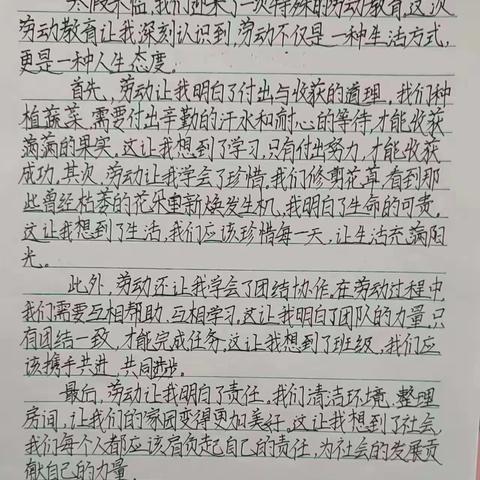 寒假来临,我们迎来了一次特殊的劳动教育,这次
劳动教育让我深刻认识到,劳动不仅是一种生活方式,
更是一种人生态度。
首先,劳动让我明白了付出与收获的道理。我们种
植蔬菜,需要付出辛勤的汗水和耐心的等待,才能收获
满满的果实。这让我想到了学习,只有付出努力,才能收获
成功。其次,劳动让我学会了珍惜。我们修剪花草,看到那
些曾经枯萎的花朵重新焕发生机,我明白了生命的可贵。
这让我想到了生活,我们应该珍惜每一天,让生活充满阳
光。
此外,劳动还让我学会了团结协作。在劳动过程中,
我们需要互相帮助,互相学习。这让我明白了团队的力量,只
有团结一致,才能完成任务。这让我想到了班级,我们应
该携手共进,共同进步。
最后,劳动让我明白了责任。我们清洁环境,整理
房间,让我们的家园变得更加美好。这让我想到了社会,
我们每个人都应该肩负起自己的责任,为社会的发展贡
献自己的力量。